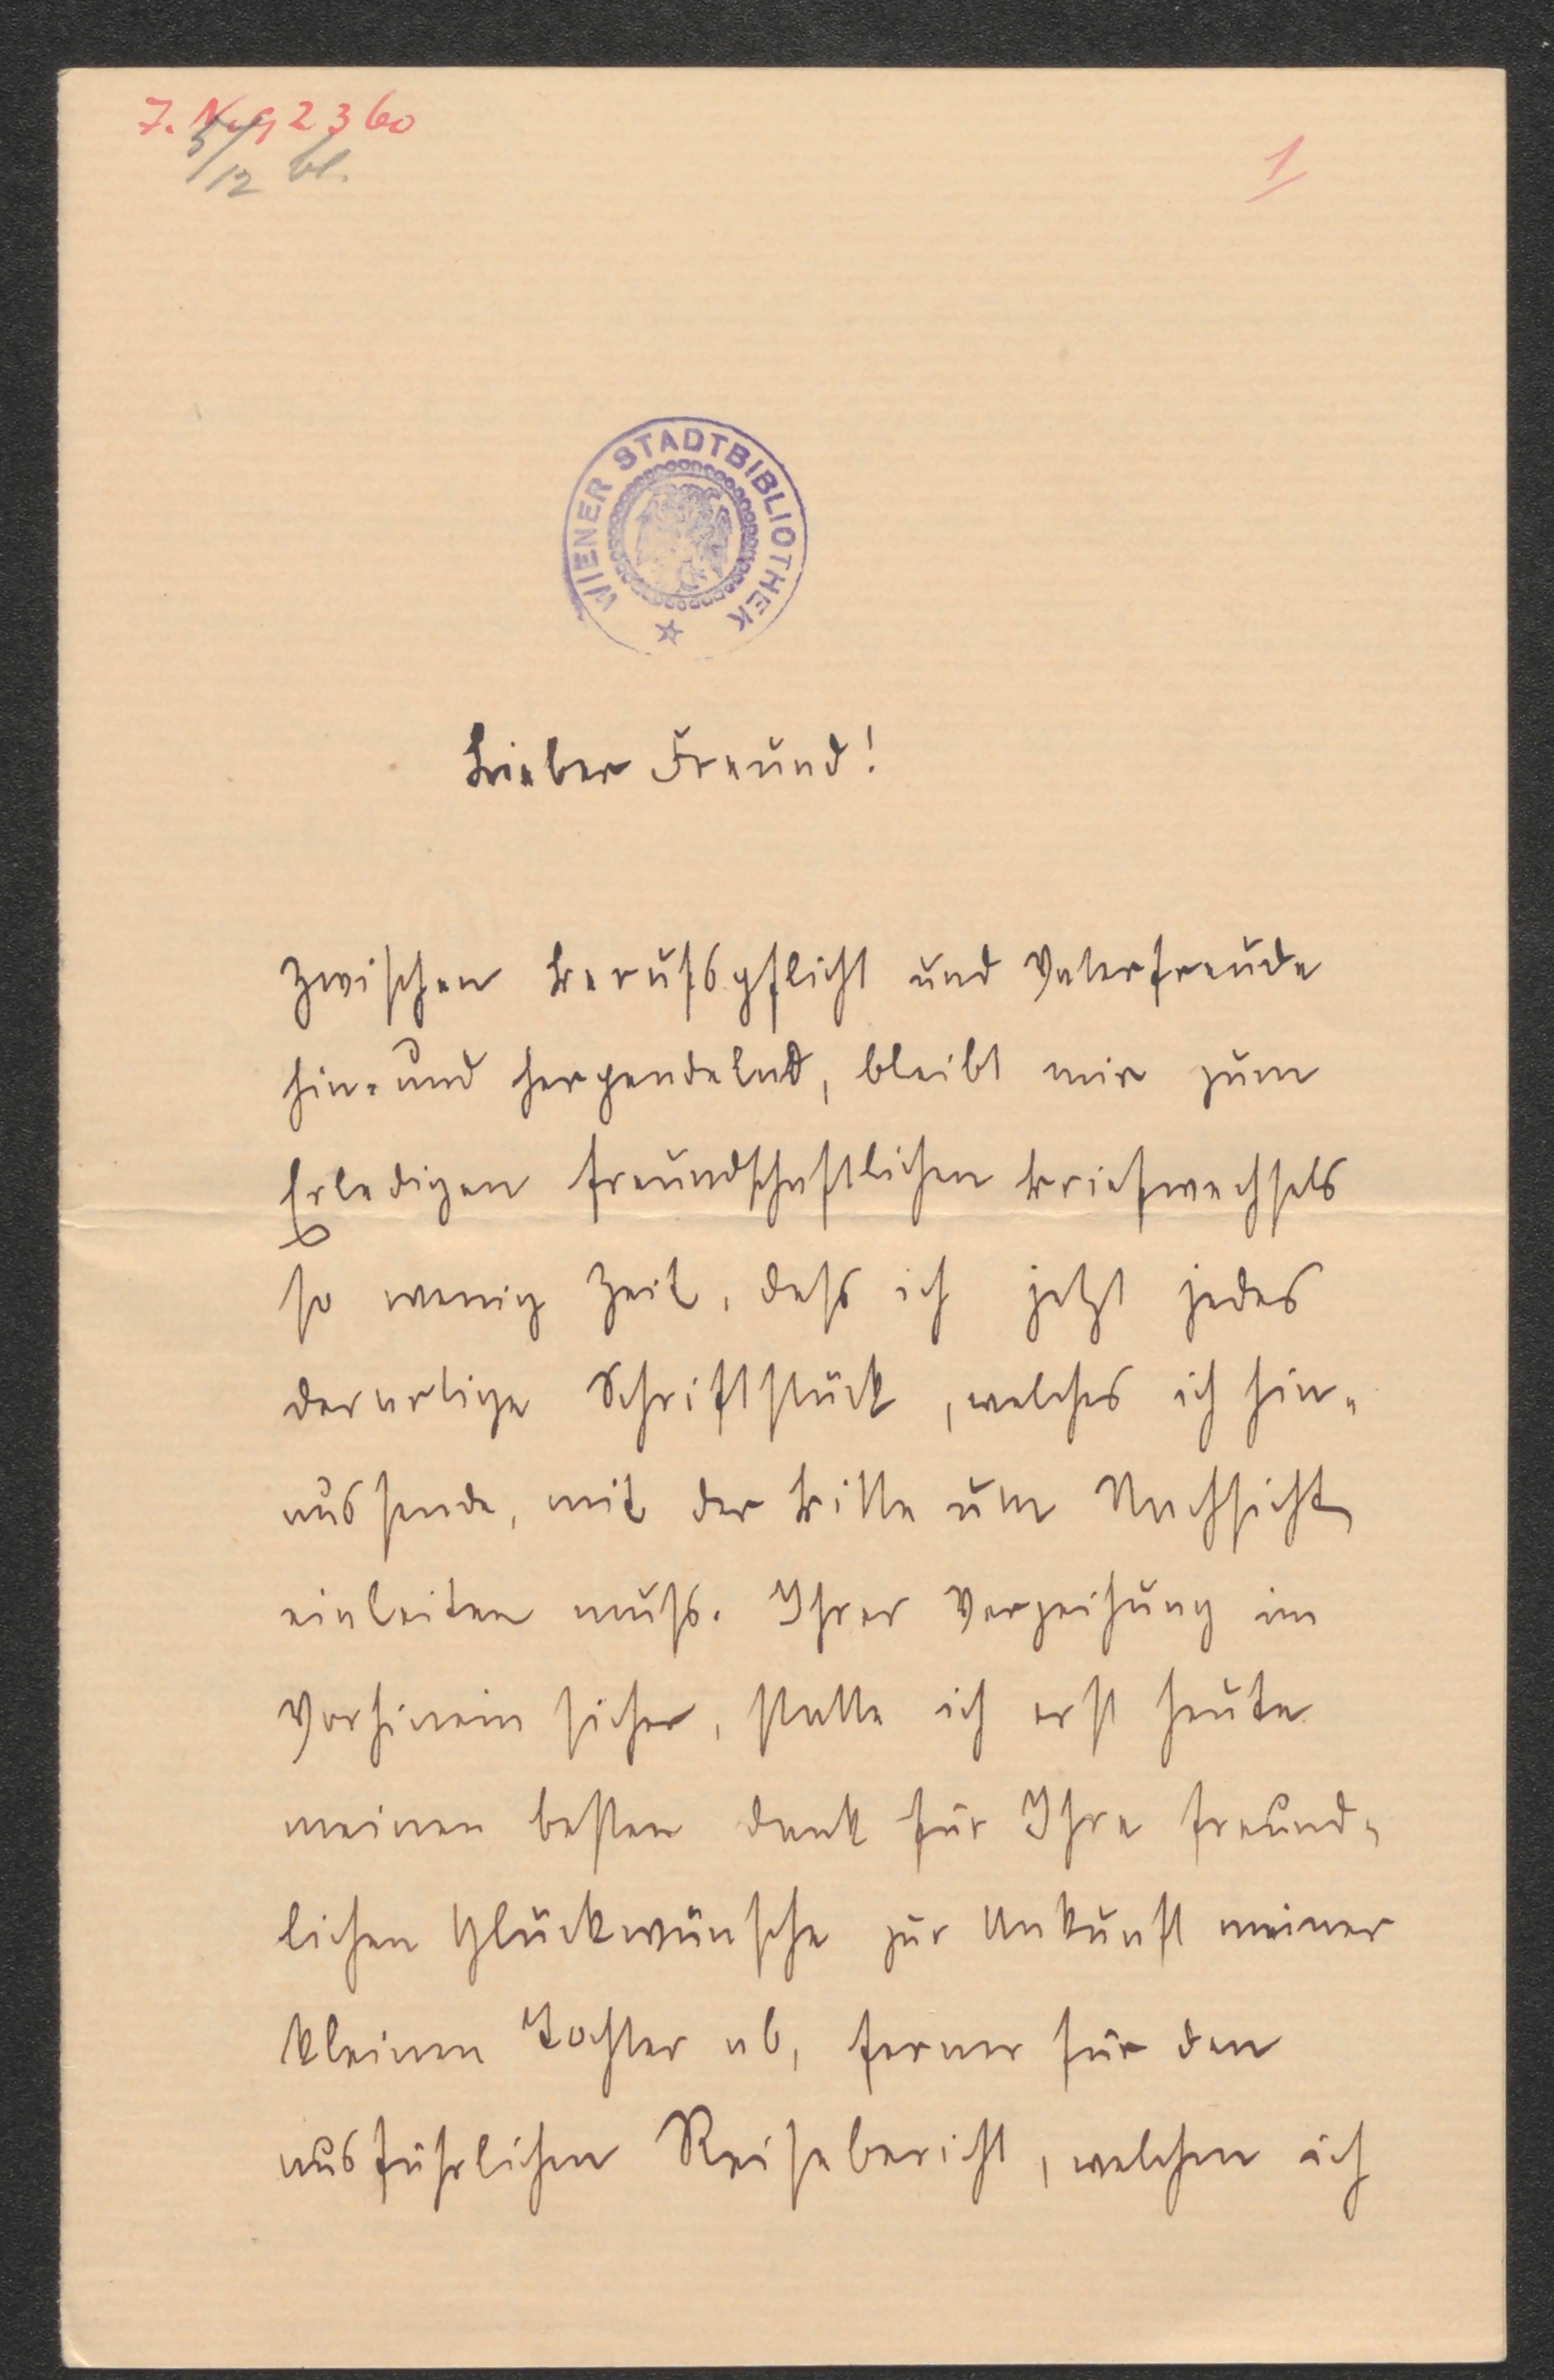 J. N. 92360
5/12 bl.
1
WIENER STADTBIBLIOTHEK
Lieber Freund!
Zwischen Berufspflicht und Vaterfreude
hin- und herpendelnd, bleibt mir zum
Erledigen freundschaftlichen Briefwechsels
so wenig Zeit, daß ich jetzt jedes
derartige Schriftstück, welches ich hin-
aussende, mit der Bitte um Nachsicht
einleiten muß. Ihrer Verzeihung im
Vorhinein sicher, statte ich erst heute
meinen besten Dank für Ihre freund-
lichen Glückwünsche zur Ankunft meiner
kleinen Tochter ab, ferner für den
ausführlichen Reisebericht, welchen ich